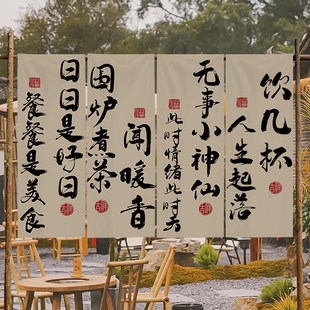 饮几杯
人生起落
无事小神仙
此时情绪此时天
闻暖香
围炉煮茶
日日是好日
餐餐是美食